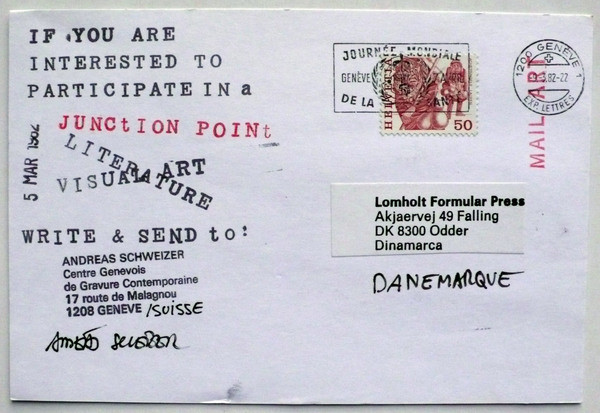 IF YOU ARE
INTERESTED TO
PARTICIPATE IN a
JUNCtION POINt
LITERATURE
VISUAL ART
5 MAR 1982
WRITE & SEND to:
ANDREAS SCHWEIZER
Centre Genevois
de Gravure Contemporaine
17 route de Malagnou
1208 GENEVE /SUISSE
JOURNÉE MONDIALE
GENÈVE
DE LA SANTÉ
HELVETIA
50
1200 GENÈVE 1
82-22
EXP. LETTRES
MAIL ART
Lomholt Formular Press
Akjaervej 49 Falling
DK 8300 Odder
Dinamarca
DANEMARQUE